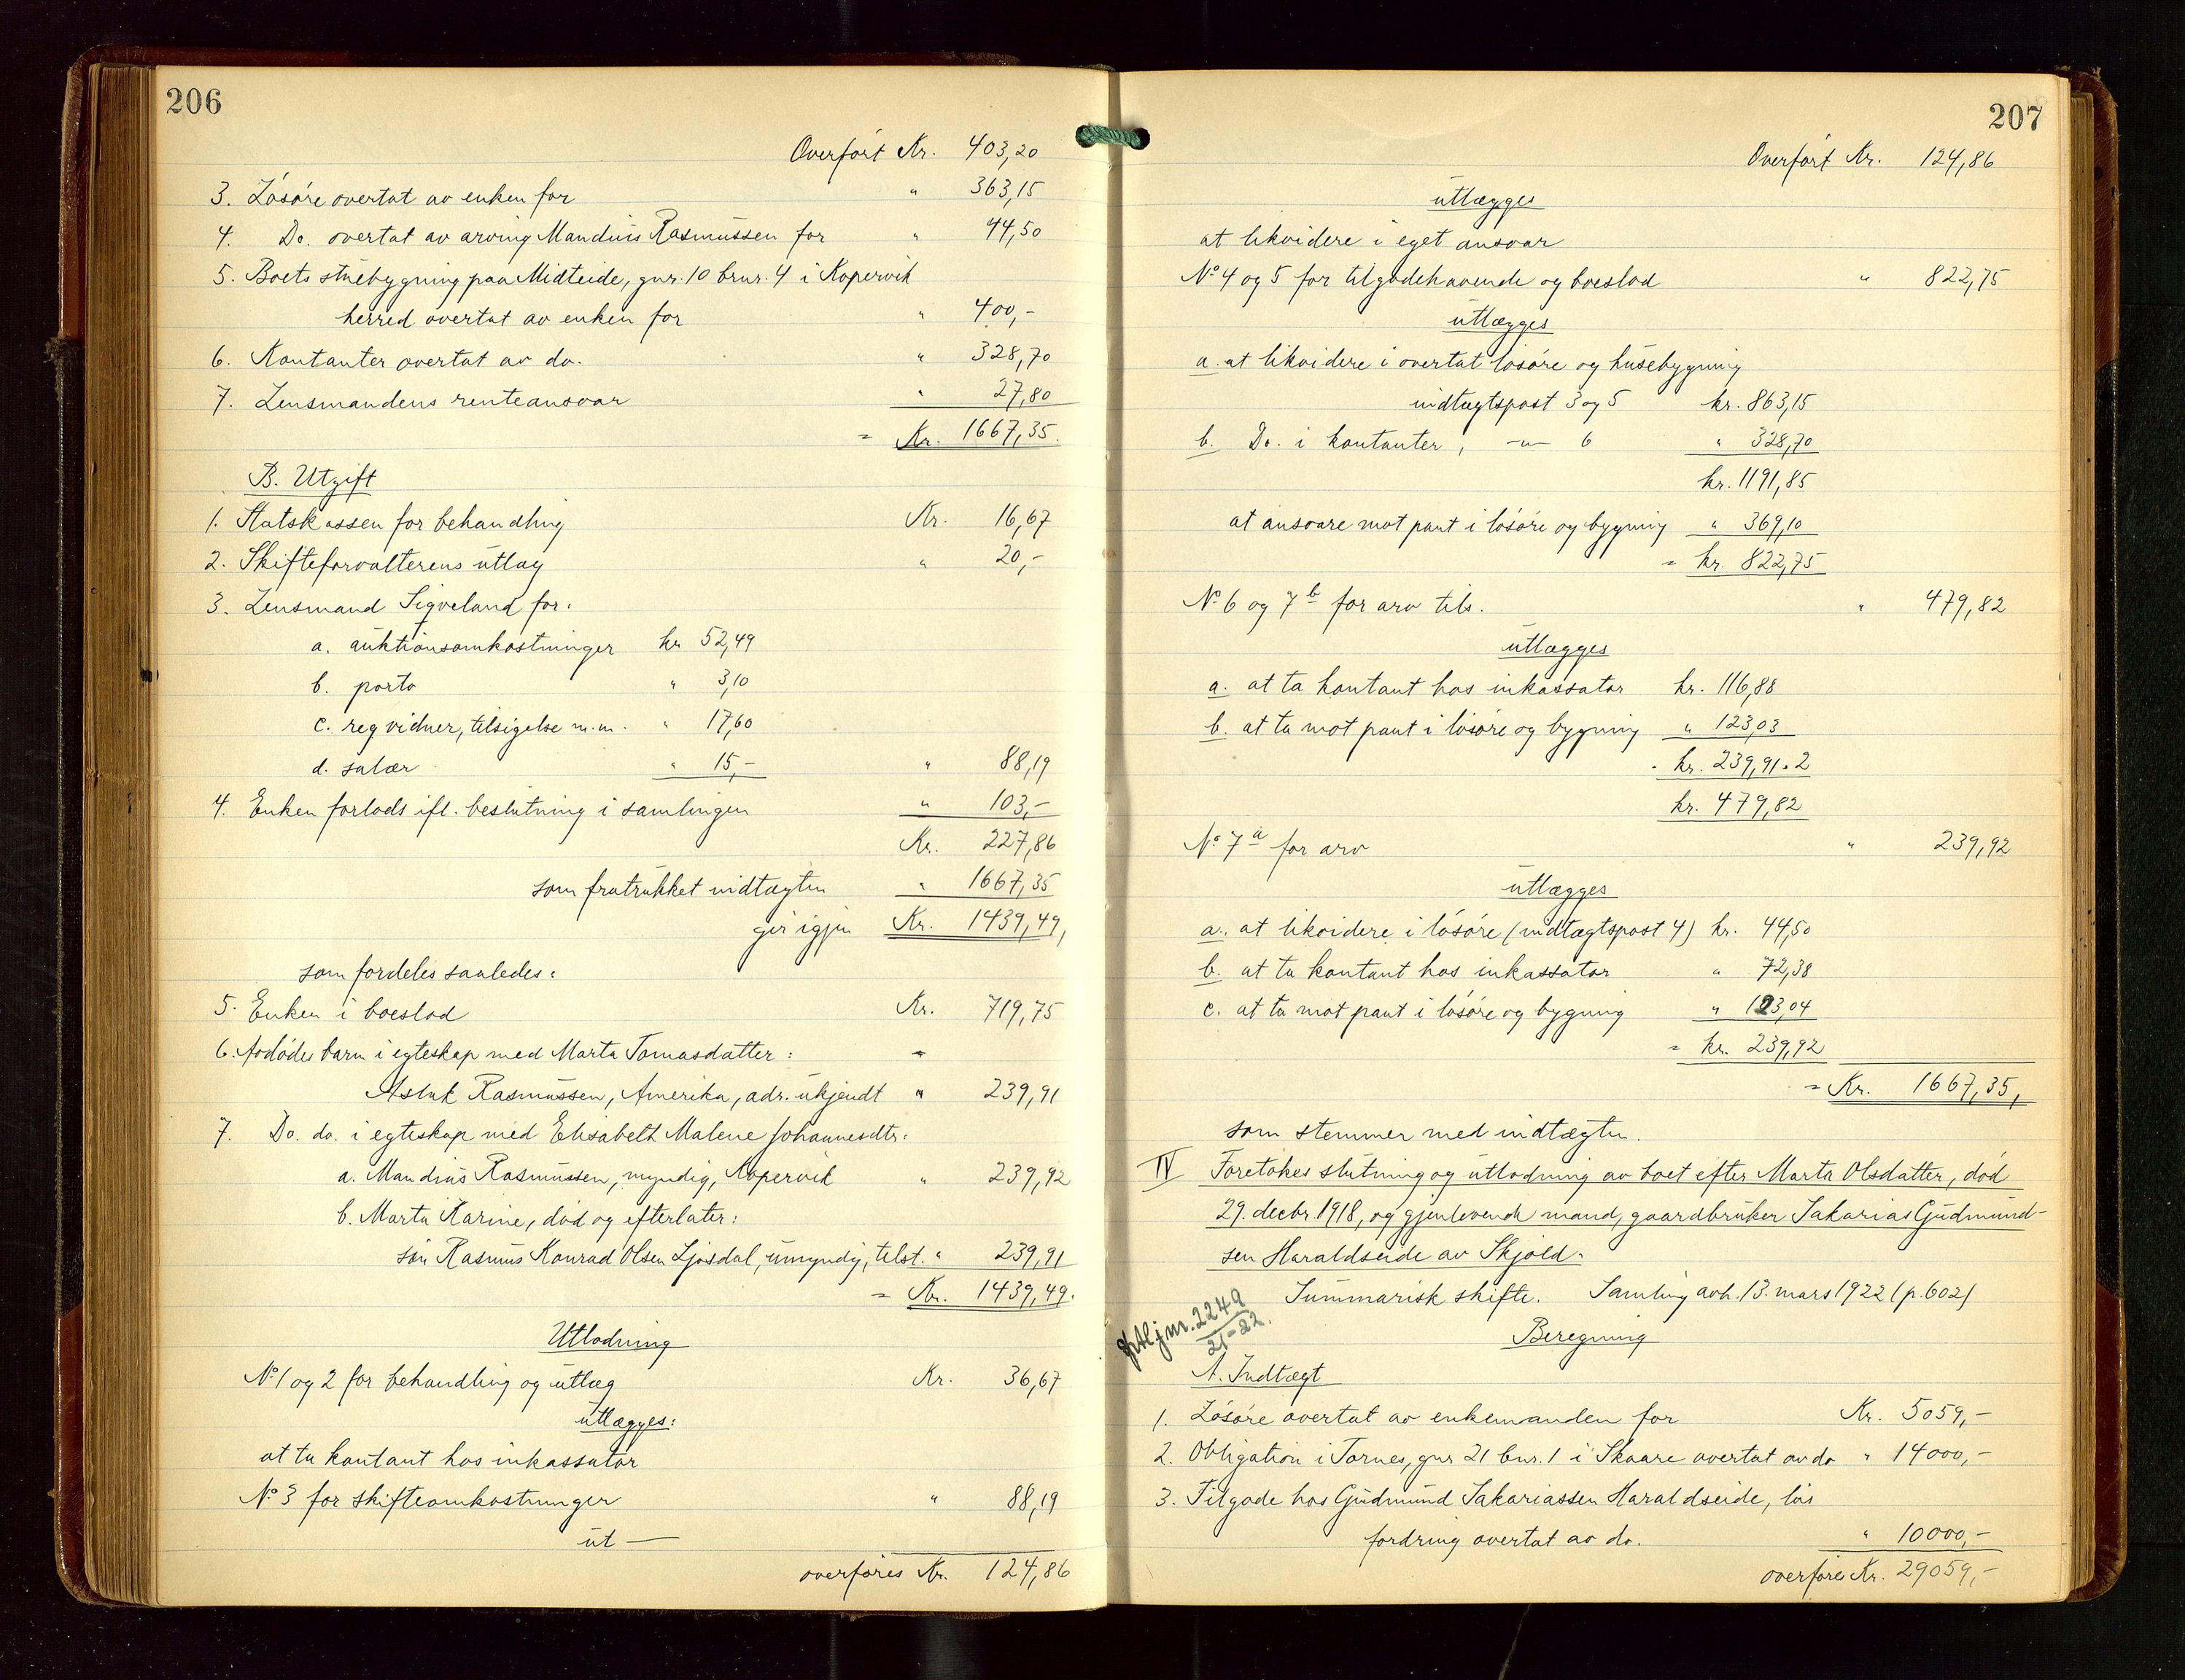 206
Overført Kr. 403,20
3. Løsøre overtat av enken for " 363,15
4. Do. overtat av arving Mandius Rasmussen for " 44,50
5. Boets stuebygning paa Midteide, gnr. 10 brnr. 4 i Kopervik
herred overtat av enken for " 400,-
6. Kontanter overtat av do. " 328,70
7. Lensmandens renteansvar " 27,80
= Kr. 1667,35.
B. Utgift
1. Statskassen for behandling Kr. 16,67
2. Skifteforvalterens utlæg " 20,-
3. Lensmand Sigveland for:
a. auktionsomkostninger kr 52,49
b. porto " 3,10
c. reg vidner, tilsigelse m.m. " 17,60
d. salær " 15,- " 88,19
4. Enken forlods ifl. beslutning i samlingen " 103,-
Kr. 227,86
som fratrukket indtægten " 1667,35
gir igjen Kr. 1439,49,
som fordeles saaledes:
5. Enken i boeslod Kr. 719,75
6. Avdødes barn i egteskap med Marta Tomasdatter:
Aslak Rasmussen, Amerika, adr. ukjendt " 239,91
7. Do. do. i egteskap med Elisabeth Malene Johannesdtr:
a. Mandius Rasmussen, myndig, Kopervik " 239,92
b. Marta Karine, død og efterlater:
søn Rasmus Konrad Olsen Ljosdal, umyndig, tilst. " 239,91
= Kr. 1439,49.
Utlodning
No 1 og 2 for behandling og utlæg Kr. 36,67
utlægges:
at ta kontant hos inkassator
No 3 for skifteomkostninger " 88,19
ut —
overføres Kr. 124,86
207
Overført Kr. 124,86
utlægges
at likvidere i eget ansvar
No 4 og 5 for tilgodehavende og boeslod " 822,75
utlægges
a. at likvidere i overtat løsøre og husebygning
indtægtspost 3 og 5 kr. 863,15
b. Do. i kontanter, —"— 6 " 328,70
kr. 1191,85
at ansvare mot pant i løsøre og bygning " 369,10
= kr. 822,75
No 6 og 7 b for arv tils. " 479,82
utlægges
a. at ta kontant hos inkassator kr. 116,88
b. at ta mot pant i løsøre og bygning " 123,03
= kr. 239,91 . 2
kr. 479,82
No 7 a for arv " 239,92
utlægges
a. at likvidere i løsøre (indtægtspost 4) kr. 44,50
b. at ta kontant hos inkassator " 72,38
c. at ta mot pant i løsøre og bygning " 123,04
= kr. 239,92
= Kr. 1667,35,
som stemmer med indtægten.
IV Foretokes slutning og utlodning av boet efter Marta Olsdatter, død
29. decbr. 1918, og gjenlevende mand, gaardbruker Sakarias Gudmund-
sen Haraldseide av Skjold.
Summarisk skifte. Samling avh. 13. mars 1922 (p. 602)
jnr. 2249
21-22.
Beregning
A. Indtægt
1. Løsøre overtat av enkemanden for Kr. 5059,-
2. Obligation i Tornes, gnr 21 bnr. 1 i Skaare overtat av do " 14000,-
3. Tilgode hos Gudmund Sakariassen Haraldseide, løs
fordring overtat av do. " 10000,-
overføres Kr. 29059,-